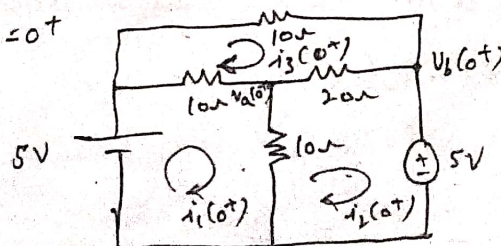 =0+
10Ω
i3(0+)
10Ω
va(0+)
20Ω
vb(0+)
5V
10Ω
5V
i1(0+)
i2(0+)